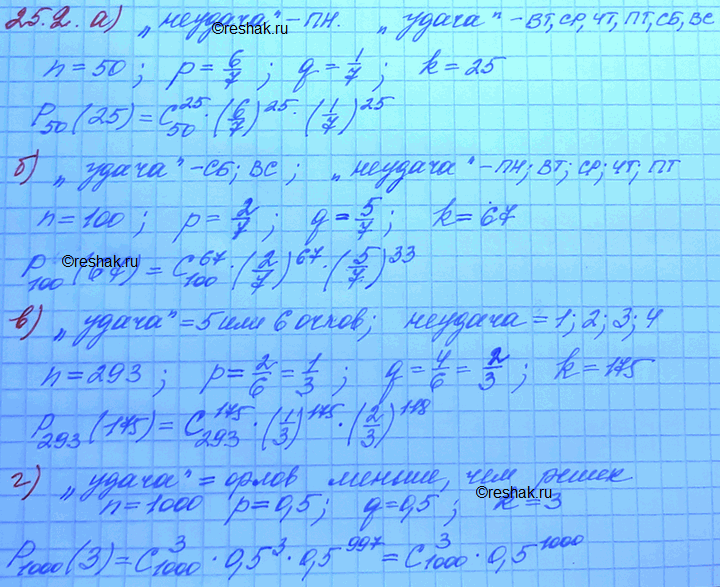 25.2. а) „неудача" – ПН. „удача" – ВТ, СР, ЧТ, ПТ, СБ, ВС
©reshak.ru
n = 50; p = 6/7; q = 1/7; k = 25
P₅₀(25) = C₅₀²⁵ · (6/7)²⁵ · (1/7)²⁵
б) „удача" – СБ; ВС; „неудача" – ПН; ВТ; СР; ЧТ; ПТ
n = 100; p = 2/7; q = 5/7; k = 67
©reshak.ru
P₁₀₀(67) = C₁₀₀⁶⁷ · (2/7)⁶⁷ · (5/7)³³
в) „удача" = 5 или 6 очков; неудача = 1; 2; 3; 4
n = 293; p = 2/6 = 1/3; q = 4/6 = 2/3; k = 175
P₂₉₃(175) = C₂₉₃¹⁷⁵ · (1/3)¹⁷⁵ · (2/3)¹¹⁸
г) „удача" = орлов меньше, чем решек
n = 1000 p = 0,5; q = 0,5; k = 3
©reshak.ru
P₁₀₀₀(3) = C₁₀₀₀³ · 0,5³ · 0,5⁹⁹⁷ = C₁₀₀₀³ · 0,5¹⁰⁰⁰